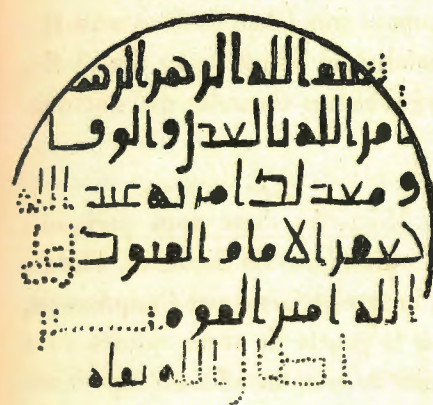 بسم الله الرحمن الرحيم
امر الله بالعدل والوفا
امر به عبد الله
جعفر الامام المتوكل على
الله امير المومنين
اطال الله بقاه